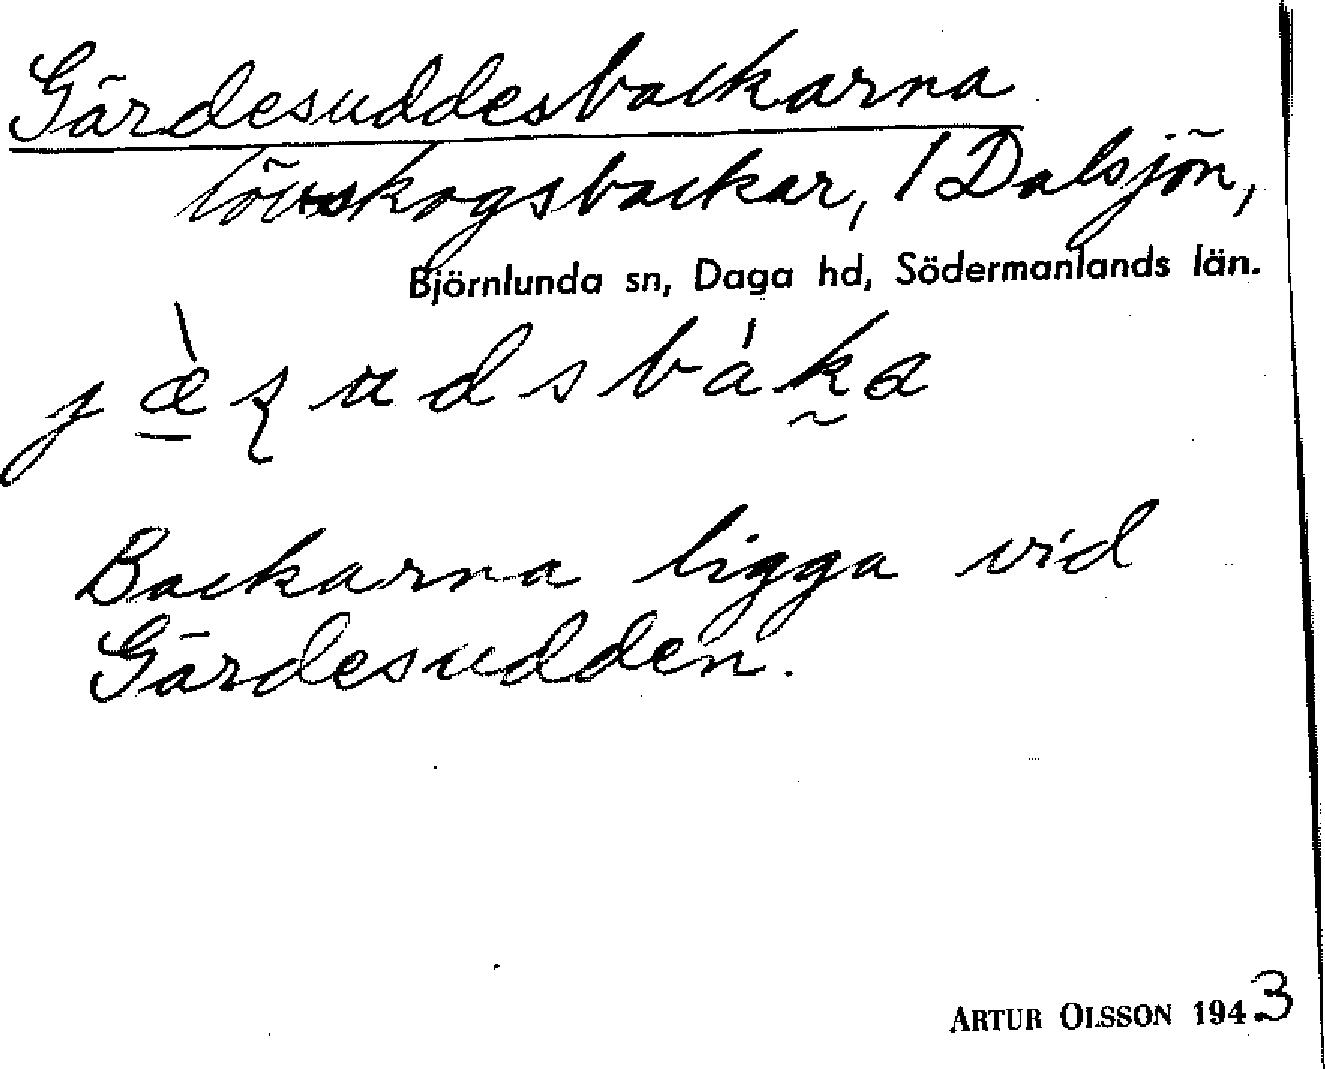 Gärdesuddesbackarna
lövskogsbackar, 1 Dalsjön,
Björnlunda sn, Daga hd, Södermanlands län.
Backarna ligga vid
Gärdesudden.
ARTUR OLSSON 1943